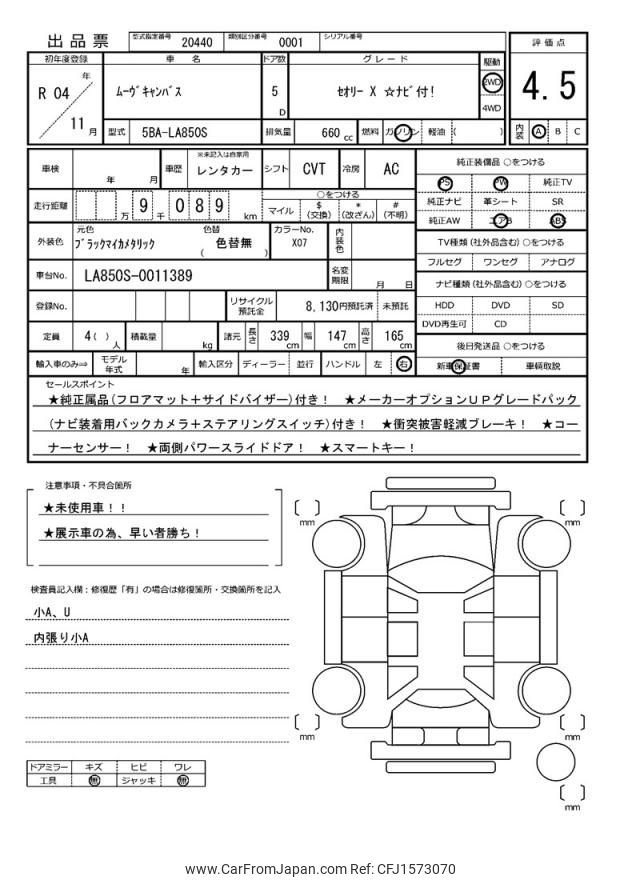 出品票
型式指定番号 20440 類別区分番号 0001 シリアル番号
評価点
4.5
内装 A B C
初年度登録 車名 ドア数 グレード 駆動
R 04 年 11 月
ﾑｰｳﾞｷｬﾝﾊﾞｽ
5 D
ｾｵﾘｰ X ☆ﾅﾋﾞ付!
2WD
4WD
型式 5BA-LA850S 排気量 660 cc 燃料 ガソリン 軽油 ( )
車検 年 月 車歴 ※未記入は自家用 レンタカー シフト CVT 冷房 AC
走行距離 万 9 千 0 8 9 km
○をつける
マイル $(交換) *(改ざん) #(不明)
外装色 元色 ﾌﾞﾗｯｸﾏｲｶﾒﾀﾘｯｸ 色替 ( 色替無 ) カラーNo. X07 内装色
車台No. LA850S-0011389 名変期限 月 日
登録No. リサイクル預託金 8,130円預託済 未預託
定員 4( )人 積載量 kg 諸元 長さ 339 cm 幅 147 cm 高さ 165 cm
輸入車のみ⇒ モデル年式 年 輸入区分 ディーラー 並行 ハンドル 左 右
純正装備品 ○をつける
PS PW 純正TV
純正ナビ 革シート SR
純正AW エアB ABS
TV種類(社外品含む) ○をつける
フルセグ ワンセグ アナログ
ナビ種類(社外品含む) ○をつける
HDD DVD SD
DVD再生可 CD
後日発送品 ○をつける
新車保証書 車輌取説
セールスポイント
★純正属品(フロアマット+サイドバイザー)付き! ★メーカーオプションUPグレードパック
(ナビ装着用バックカメラ+ステアリングスイッチ)付き! ★衝突被害軽減ブレーキ! ★コー
ナーセンサー! ★両側パワースライドドア! ★スマートキー!
注意事項・不具合箇所
★未使用車!!
★展示車の為、早い者勝ち!
検査員記入欄:修復歴「有」の場合は修復箇所・交換箇所を記入
小A、U
内張り小A
ドアミラー キズ ヒビ ワレ
工具 無 ジャッキ 無
mm
mm
mm
mm
mm
www.CarFromJapan.com Ref: CFJ1573070